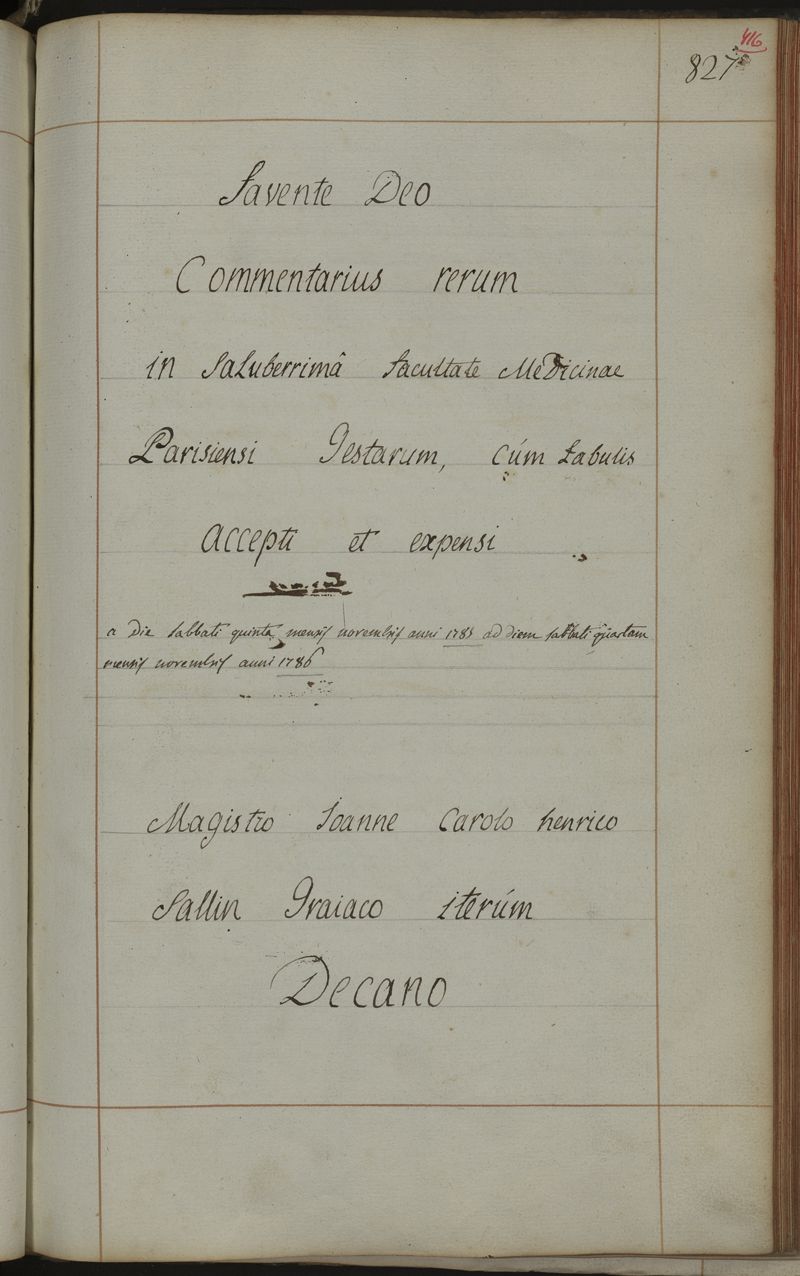 416
827
Favente Deo
Commentarius rerum
in Saluberrimâ facultate Medicinae
Parisiensi Gestarum, cúm tabulis
accepti et expensi
a Die sabbati quinta mensis novembris anni 1785 ad diem sabbati quartam
mensis novembris anni 1786
Magistro Ioanne Carolo henrico
Sallin Graiaco iterúm
Decano